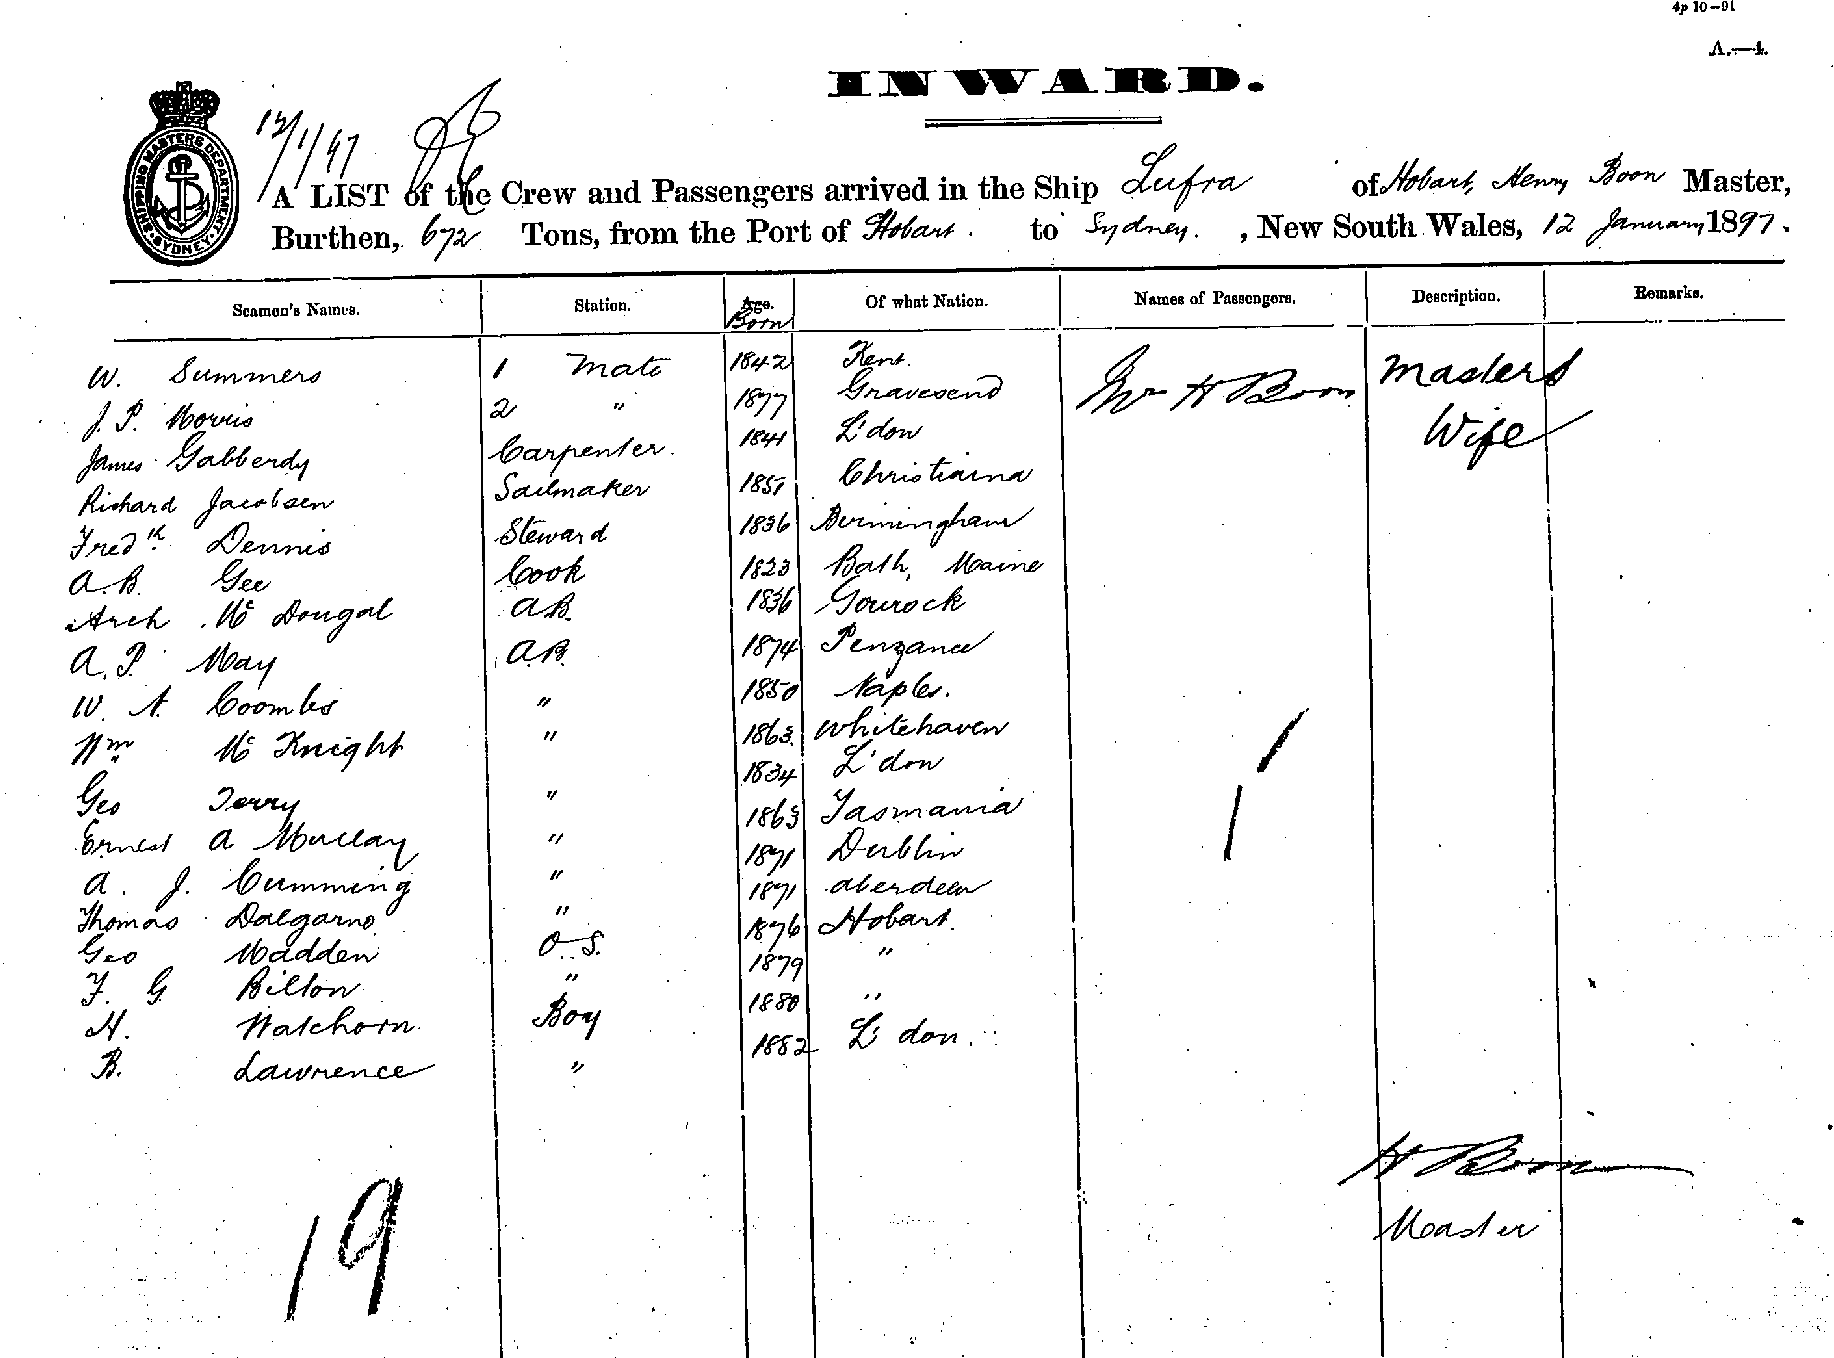 4p 10–91
A.—4.
INWARD.
SHIPPING MASTERS DEPARTMENT SYDNEY
12/1/97
A LIST of the Crew and Passengers arrived in the Ship Lufra of Hobart, Henry Boon Master,
Burthen, 672 Tons, from the Port of Hobart. to Sydney. , New South Wales, 12 January 1897.
Seamen's Names. Station. Age. Born Of what Nation. Names of Passengers. Description. Remarks.
W. Summers 1 Mate 1842 Kent. Mrs H Boon Masters
J. P. Morris 2 " 1877 Gravesend Wife
James Gabberdy Carpenter. 1841 L'don
Richard Jacobsen Sailmaker 1851 Christiania
Fredk Dennis Steward 1836 Birmingham
A. B. Gee Cook 1823 Bath, Maine
Arch Mc Dougal A.B. 1836 Gourock
A. P. May A.B. 1874 Penzance
W. A. Coombs " 1850 Naples.
Wm Mc Knight " 1863. Whitehaven
Geo Terry " 1834 L'don
Ernest A Murray " 1863 Tasmania
A. J. Cumming " 1871 Dublin
Thomas Dalgarno " 1871 Aberdeen
Geo Madden O.S. 1876 Hobart.
F. G Bilton " 1879 "
H. Watchorn Boy 1880 "
B. Lawrence " 1882 L'don.
19
1
H Boon
Master